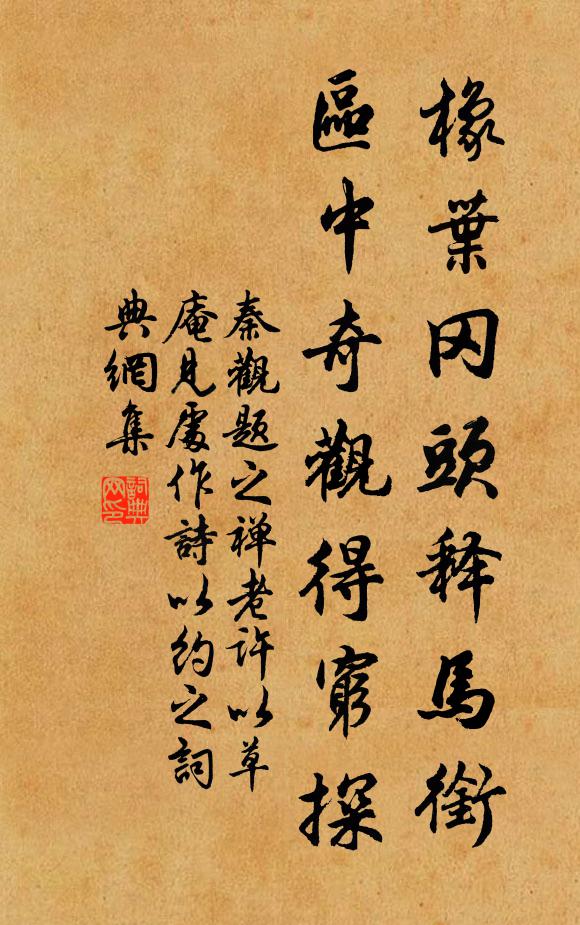 橡葉冈頭释馬銜
區中奇觀得窮探
秦觀題之禅老许以草
庵見處作詩以約之詞
典網集
詞典网印